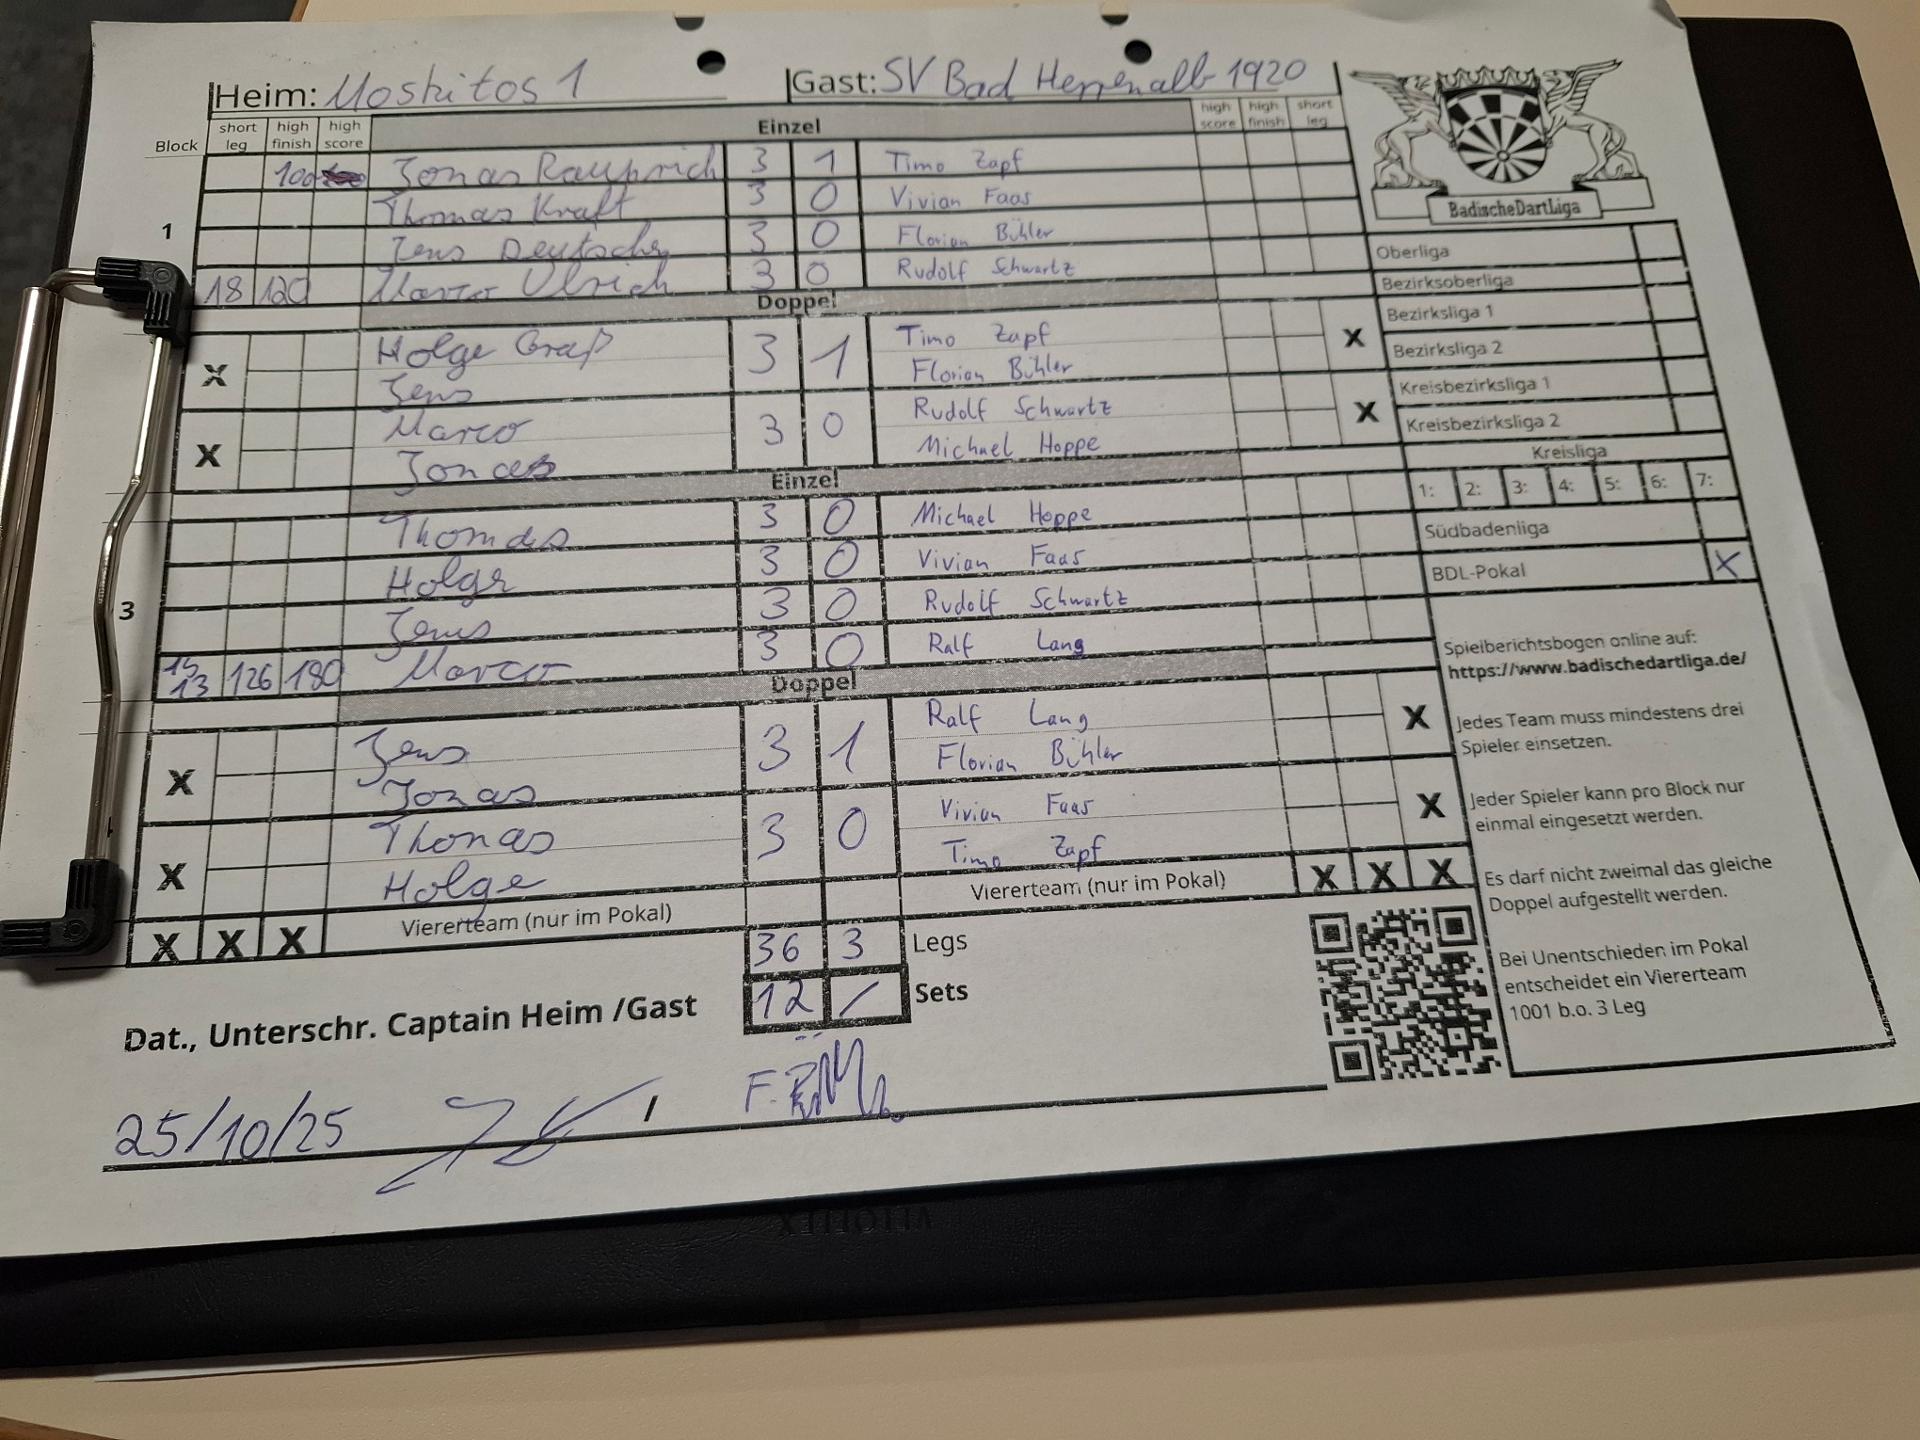 Heim: Moskitos 1 Gast: SV Bad Herrenalb 1920
Block short leg high finish high score Einzel high score high finish short leg
100 Jonas Rauprich 3 1 Timo Zapf
Thomas Kraft 3 0 Vivian Faas
1
Jens Deutsche 3 0 Florian Bühler
18 120 Marco Ulrich 3 0 Rudolf Schwartz
Doppel
X Holge Graß 3 1 Timo Zapf X
Jens Florian Bühler
X Marco 3 0 Rudolf Schwartz X
Jonas Michael Hoppe
Einzel
Thomas 3 0 Michael Hoppe
Holge 3 0 Vivian Faas
3
Jens 3 0 Rudolf Schwartz
15 13 126 180 Marco 3 0 Ralf Lang
Doppel
X Jens 3 1 Ralf Lang X
Jonas Florian Bühler
X Thomas 3 0 Vivian Faas X
Holge Timo Zapf
X X X Viererteam (nur im Pokal) Viererteam (nur im Pokal) X X X
36 3 Legs
12 / Sets
Dat., Unterschr. Captain Heim /Gast
25/10/25 /
BadischeDartLiga
Oberliga
Bezirksoberliga
Bezirksliga 1
Bezirksliga 2
Kreisbezirksliga 1
Kreisbezirksliga 2
Kreisliga
1: 2: 3: 4: 5: 6: 7:
Südbadenliga
BDL-Pokal X
Spielberichtsbogen online auf:
https://www.badischedartliga.de/
Jedes Team muss mindestens drei
Spieler einsetzen.
Jeder Spieler kann pro Block nur
einmal eingesetzt werden.
Es darf nicht zweimal das gleiche
Doppel aufgestellt werden.
Bei Unentschieden im Pokal
entscheidet ein Viererteam
1001 b.o. 3 Leg